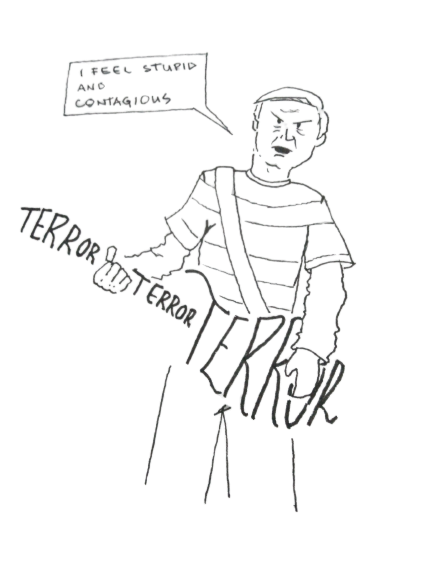 I FEEL STUPID
AND
CONTAGIOUS
TERROR
TERROR
TERROR